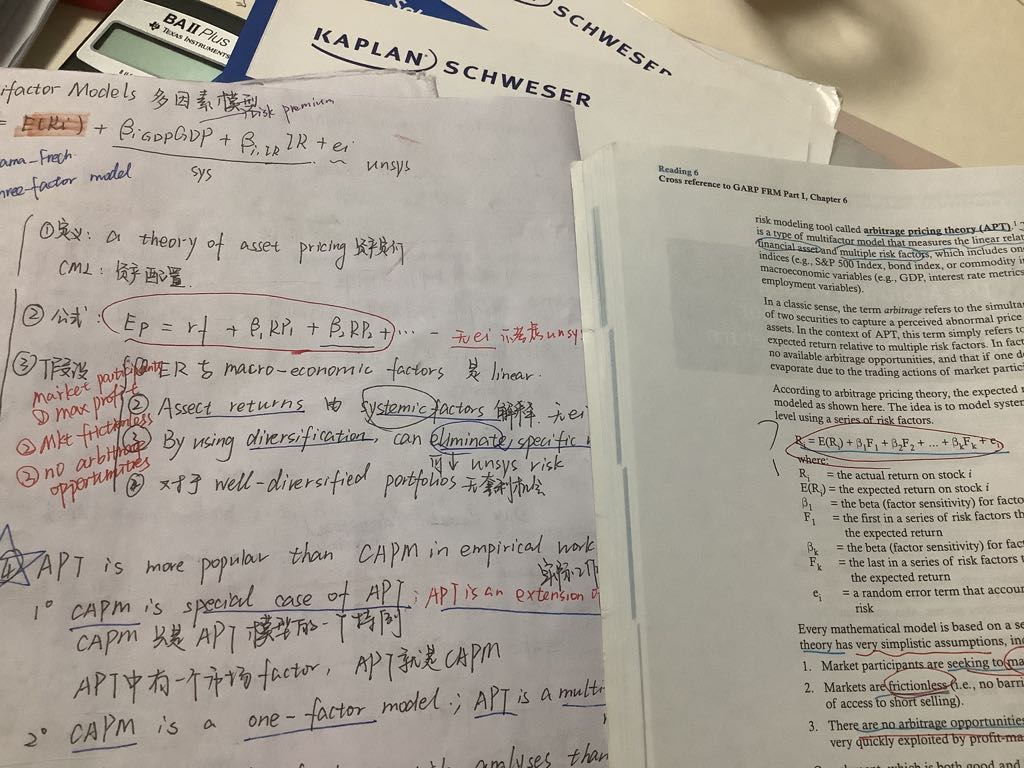 BA II Plus
TEXAS INSTRUMENTS
KAPLAN SCHWESER
SCHWESER
ifactor Models 多因素模型
risk premium
= E(Ri) + βiGDPGDP + βi,IR IR + ei
sys unsys
ama-Frech
hree-factor model
①定义: a theory of asset pricing 资产定价
CML: 资产配置
②公式: EP = rf + β1RP1 + β2RP2 + ... - 无ei 不考虑unsys
③ 假设 ① ER 与 macro-economic factors 是 linear.
market participants
① max profit
② Mkt frictionless
③ no arbitrage opportunities
② Assect returns 由 systemic factors 解释. 无ei
③ By using diversification, can eliminate specific
unsys risk
④ 对于 well-diversified portfolios 无套利机会
④ APT is more popular than CAPM in empirical work
实际工作
1° CAPM is special case of APT; APT is an extension o
CAPM 只是 APT 模型的一个特例
APT中有一个市场factor, APT就是CAPM
2° CAPM is a one-factor model.; APT is a multi
analyses than
Reading 6
Cross reference to GARP FRM Part I, Chapter 6
risk modeling tool called arbitrage pricing theory (APT).1
is a type of multifactor model that measures the linear relat
financial asset and multiple risk factors, which includes on
indices (e.g., S&P 500 Index, bond index, or commodity in
macroeconomic variables (e.g., GDP, interest rate metrics
employment variables).
In a classic sense, the term arbitrage refers to the simultan
of two securities to capture a perceived abnormal price
assets. In the context of APT, this term simply refers to
expected return relative to multiple risk factors. In fact
no available arbitrage opportunities, and that if one do
evaporate due to the trading actions of market partici
According to arbitrage pricing theory, the expected r
modeled as shown here. The idea is to model system
level using a series of risk factors.
Ri = E(Ri) + β1F1 + β2F2 + ... + βkFk + ei
where:
Ri = the actual return on stock i
E(Ri) = the expected return on stock i
β1 = the beta (factor sensitivity) for facto
F1 = the first in a series of risk factors th
the expected return
βk = the beta (factor sensitivity) for fact
Fk = the last in a series of risk factors
the expected return
ei = a random error term that accoun
risk
Every mathematical model is based on a se
theory has very simplistic assumptions, inc
1. Market participants are seeking to ma
2. Markets are frictionless (i.e., no barri
of access to short selling).
3. There are no arbitrage opportunities
very quickly exploited by profit-ma